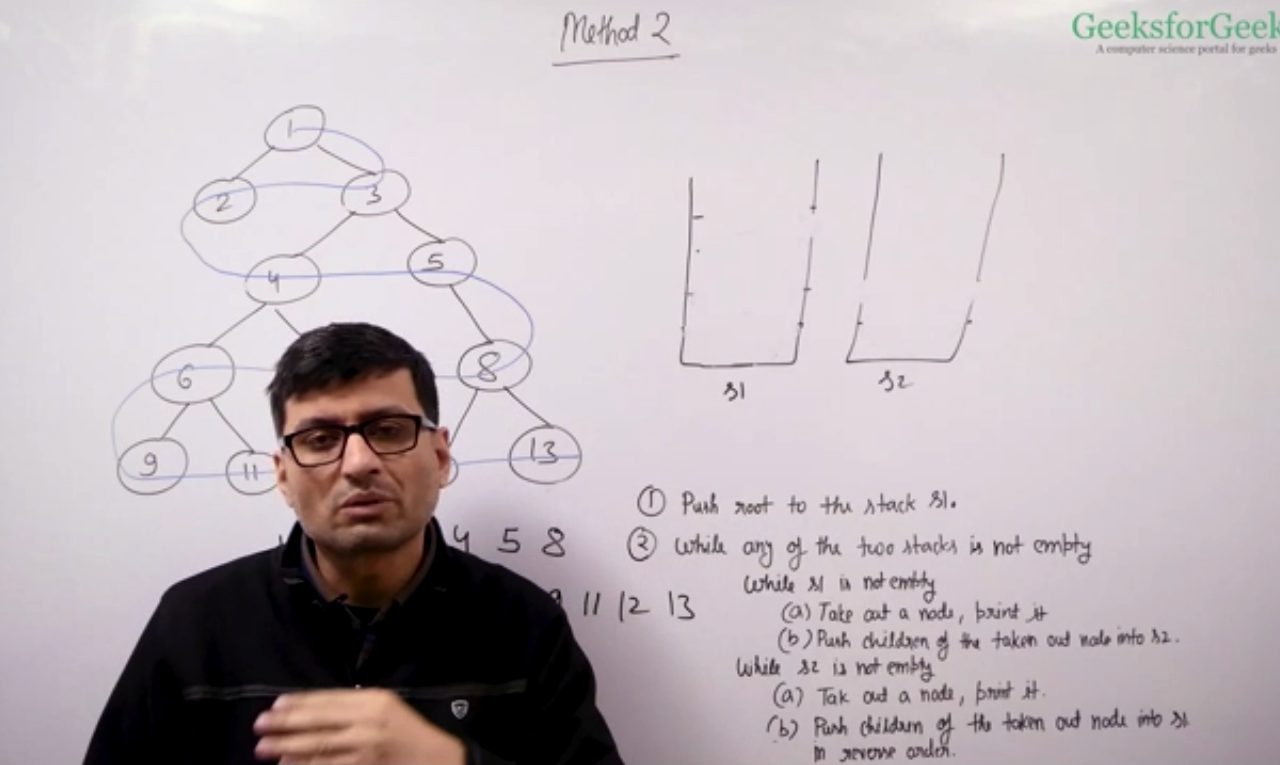 Method 2
GeeksforGeek
A computer science portal for geeks
1
2 3
4 5
6 8
9 11 13
4 5 8
11 12 13
S1 S2
① Push root to the stack S1.
② While any of the two stacks is not empty
While S1 is not empty
(a) Take out a node, print it
(b) Push children of the taken out node into S2.
While S2 is not empty
(a) Tak out a node, print it.
(b) Push children of the taken out node into S1
in reverse order.